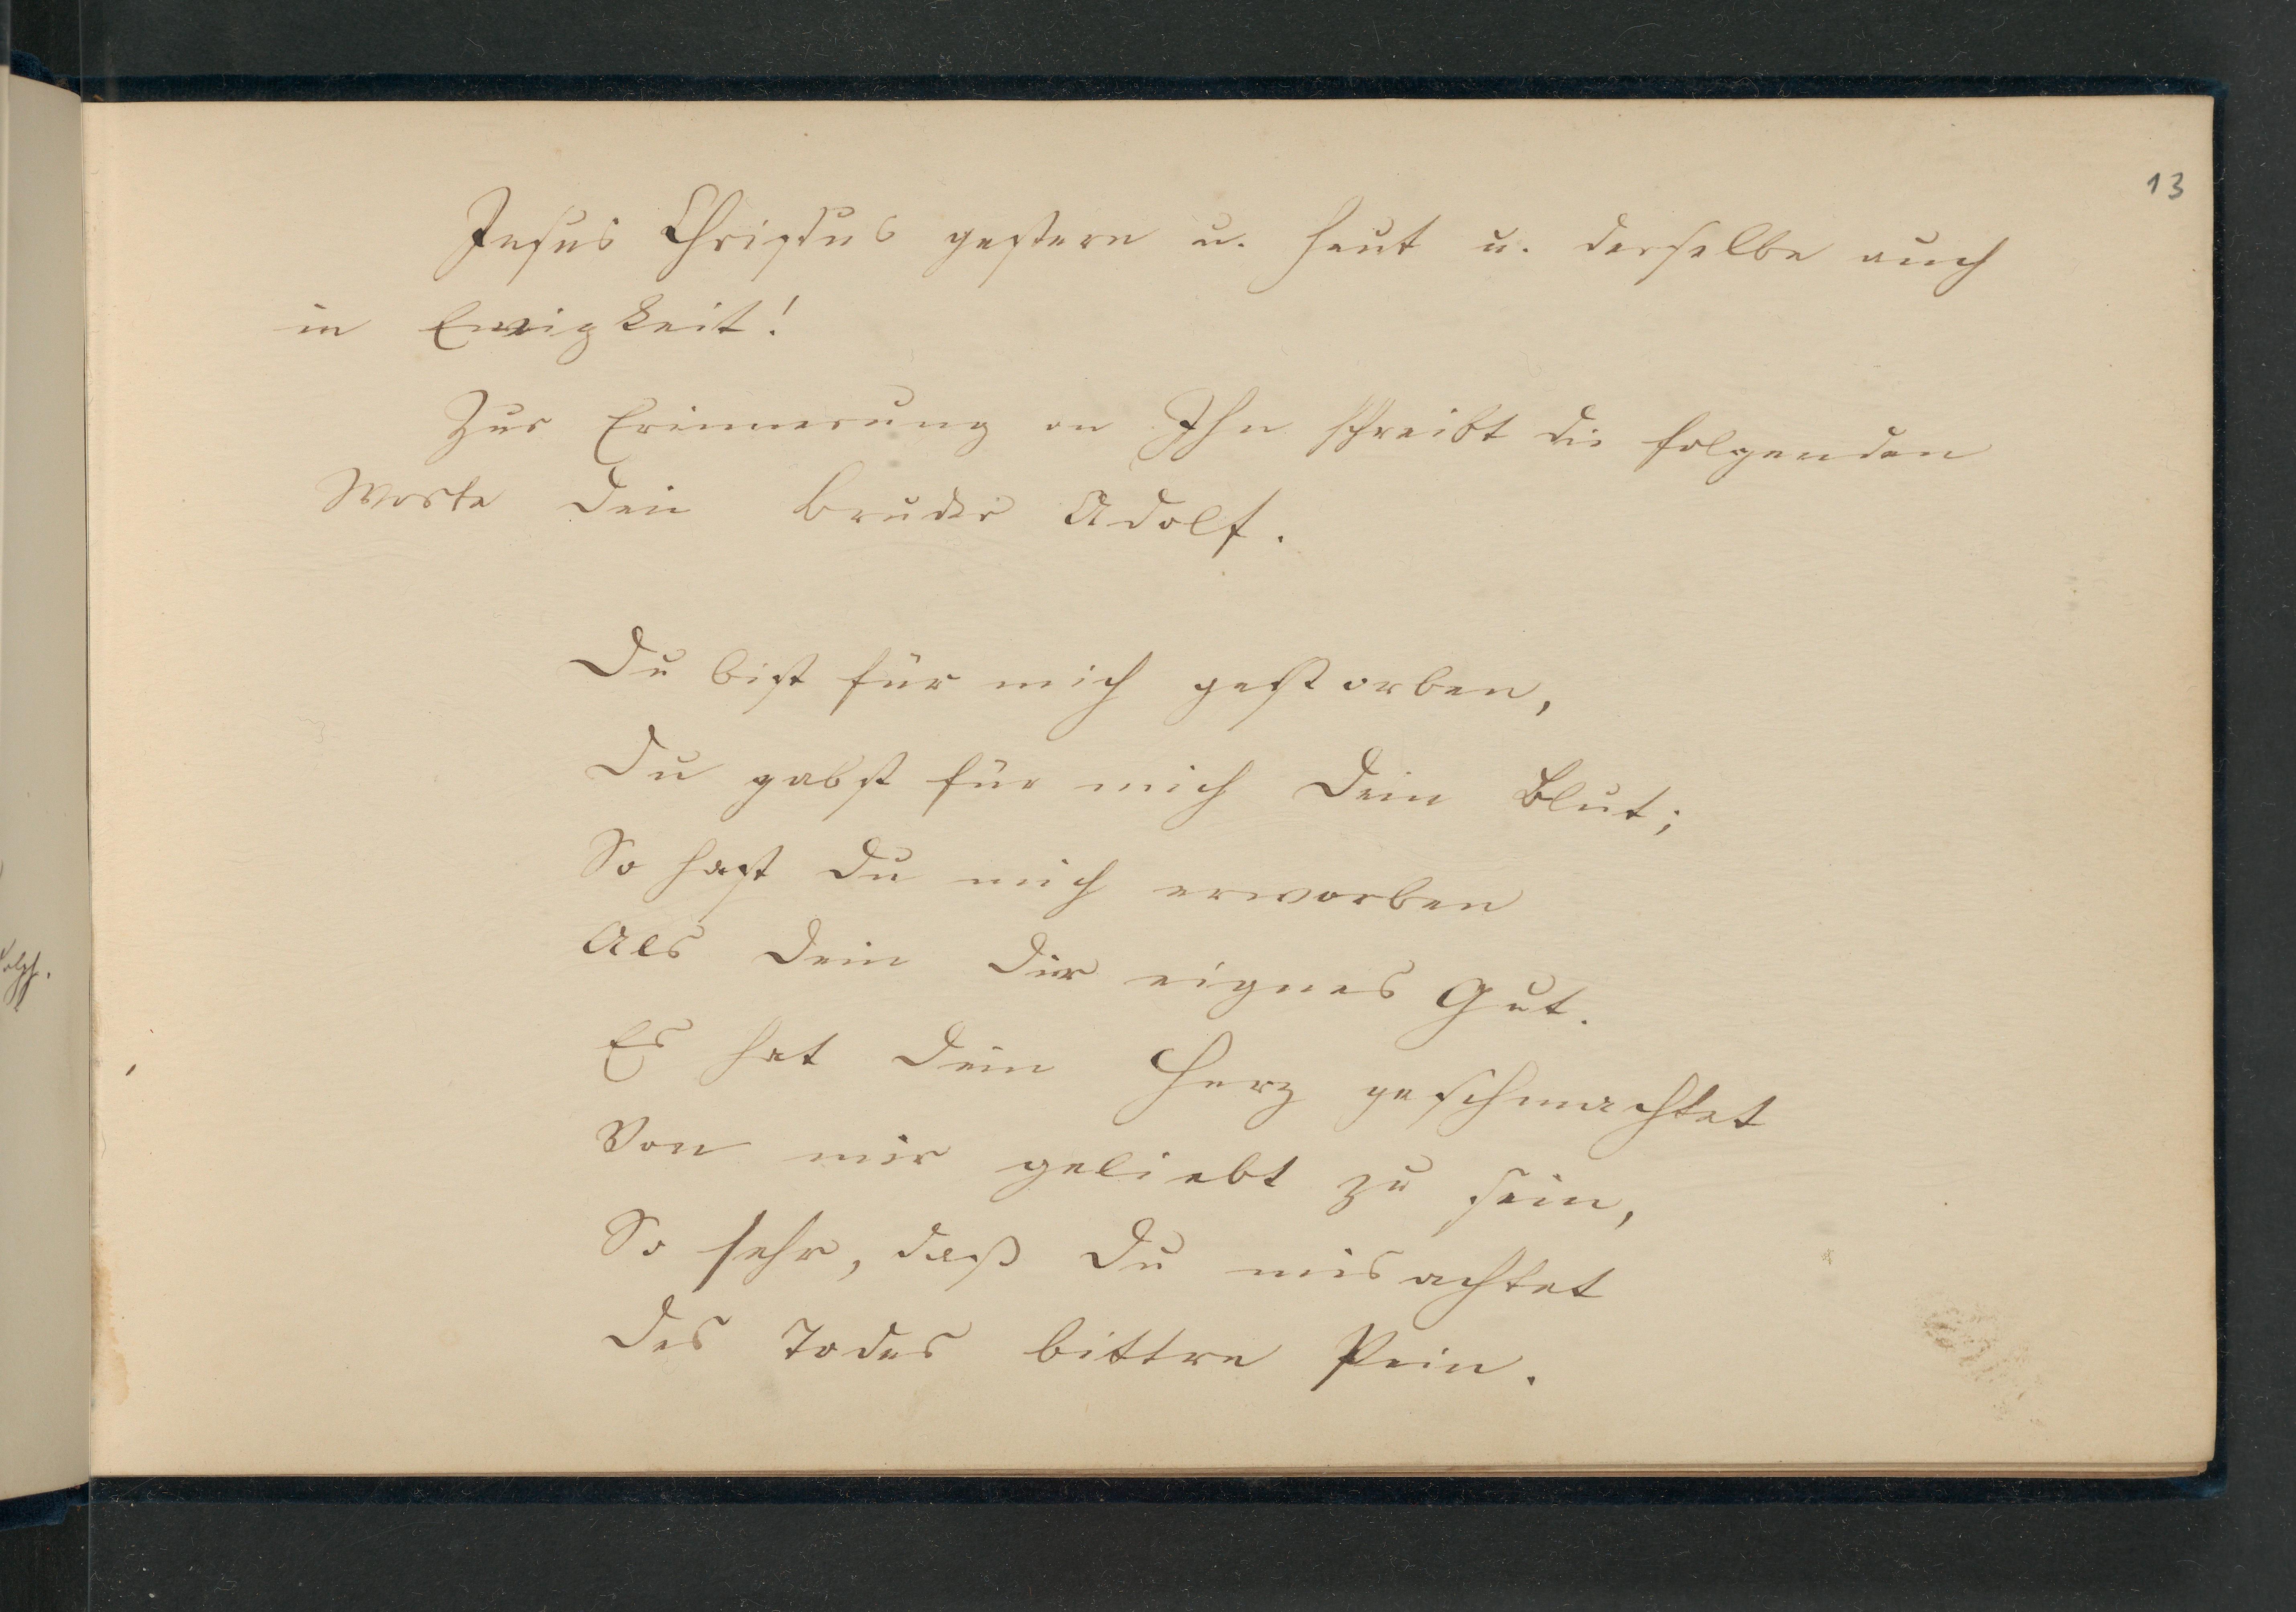 13
Jesus Christus gestern u. heut u. derselbe auch
in Ewigkeit!
Zur Erinnerung an Ihn schreibt die folgenden
Worte Dein Bruder Adolf.
Du bist für mich gestorben,
Du gabst für mich Dein Blut;
So hast Du mich erworben
Als Dein Dir eignes Gut.
Es hat Dein Herz geschmachtet
Von mir geliebt zu sein,
So sehr, daß Du misachtet
Des Todes bittre Pein.